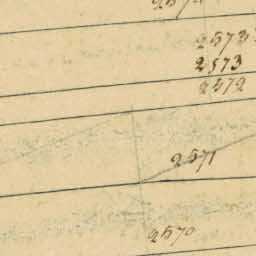 2573
2573
2572
2571
2570